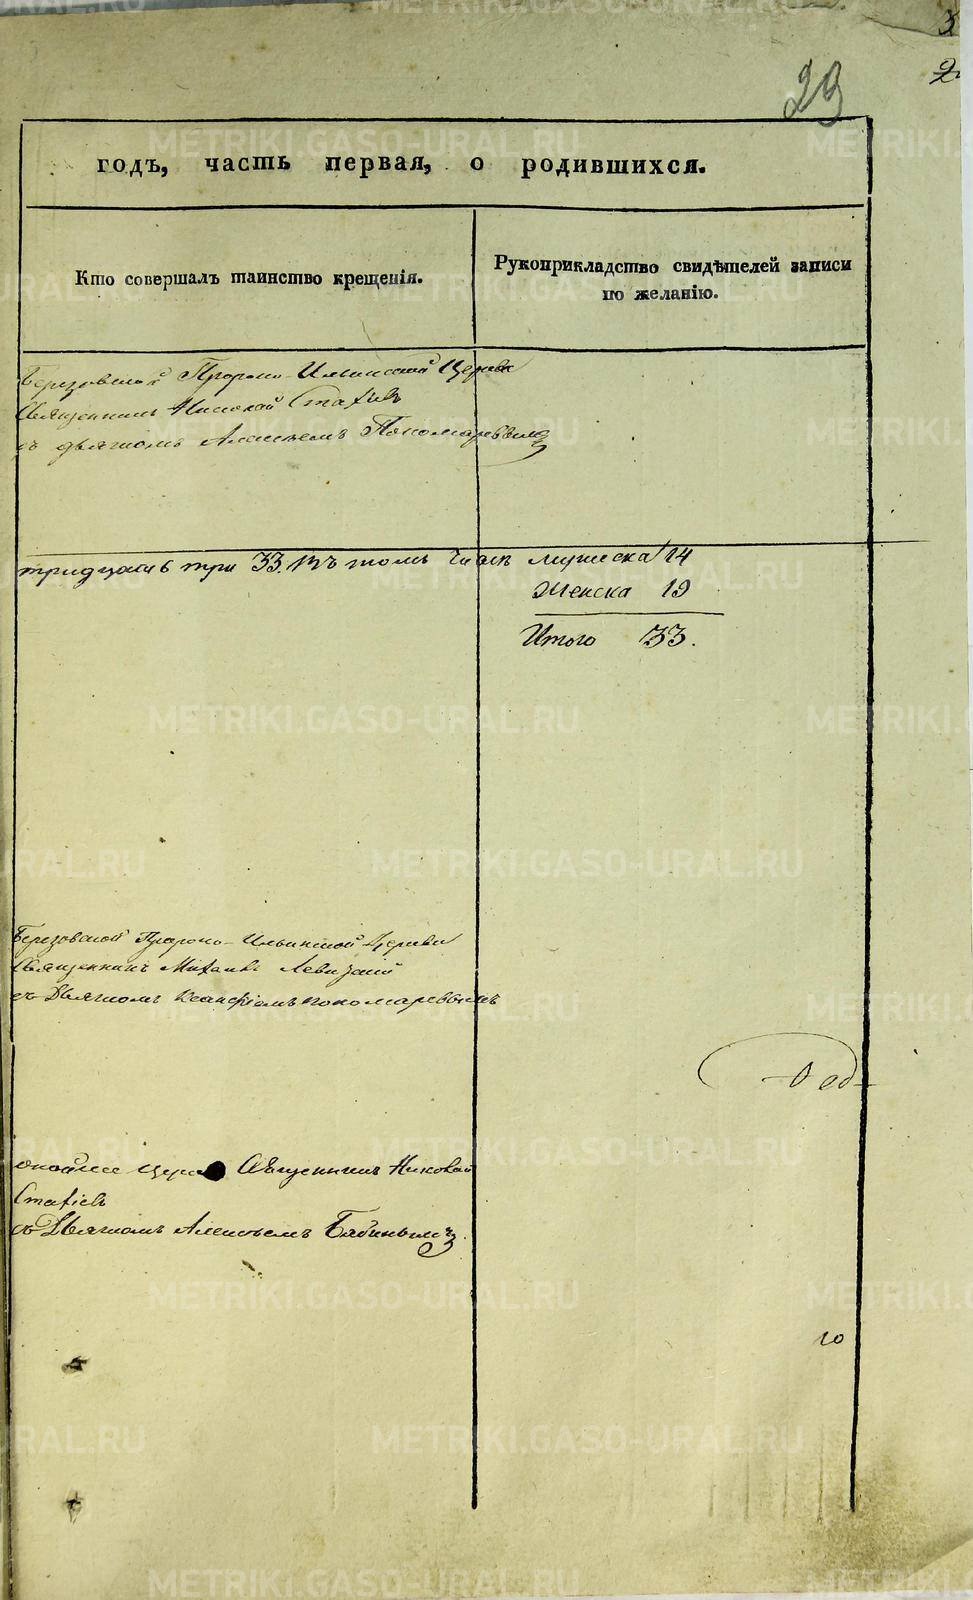 23
годъ, часть первая, о родившихся.
Кто совершалъ таинство крещенія.
Рукоприкладство свидѣтелей записи
по желанію.
Березовской Пророко-Ильинской Церкви
Священникъ Николай Стафіевъ
съ дьячкомъ Алексѣемъ Пономаревымъ
тридцать три 33. Въ томъ числѣ мужеска 14
Женска 19
Итого 33.
Березовской Пророко-Ильинской Церкви
Священникъ Михаилъ Левицкій
съ Дьячкомъ Пономаревымъ
Священникъ Николай
Стафіевъ
съ Дьячкомъ Алексѣемъ Бабинымъ
10
METRIKI.GASO-URAL.RU